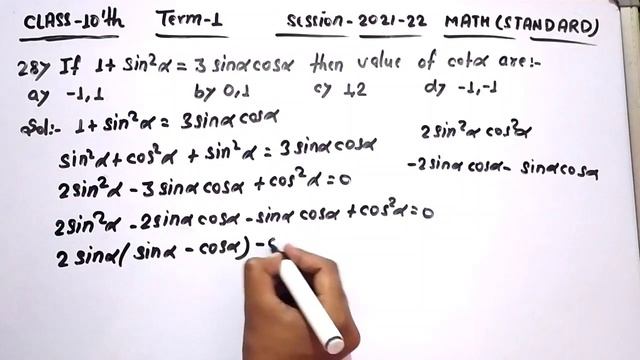 CLASS-10'th Term-1 Session-2021-22 MATH (STANDARD)
28> If 1 + sin²α = 3 sinα cosα then value of cotα are:-
a> -1,1 b> 0,1 c> 1,2 d> -1,-1
Sol:- 1 + sin²α = 3 sinα cosα
sin²α + cos²α + sin²α = 3 sinα cosα
2 sin²α - 3 sinα cosα + cos²α = 0
2 sin²α - 2 sinα cosα - sinα cosα + cos²α = 0
2 sinα ( sinα - cosα) -
2 sin²α cos²α
-2 sinα cosα - sinα cosα